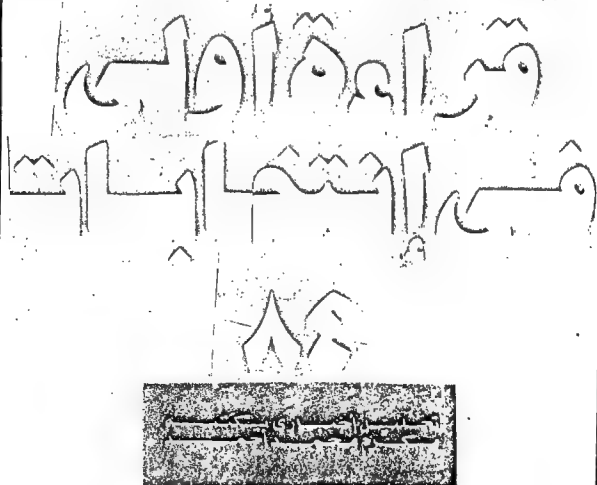 قراءة أولى
في إنتخابات
٨٤